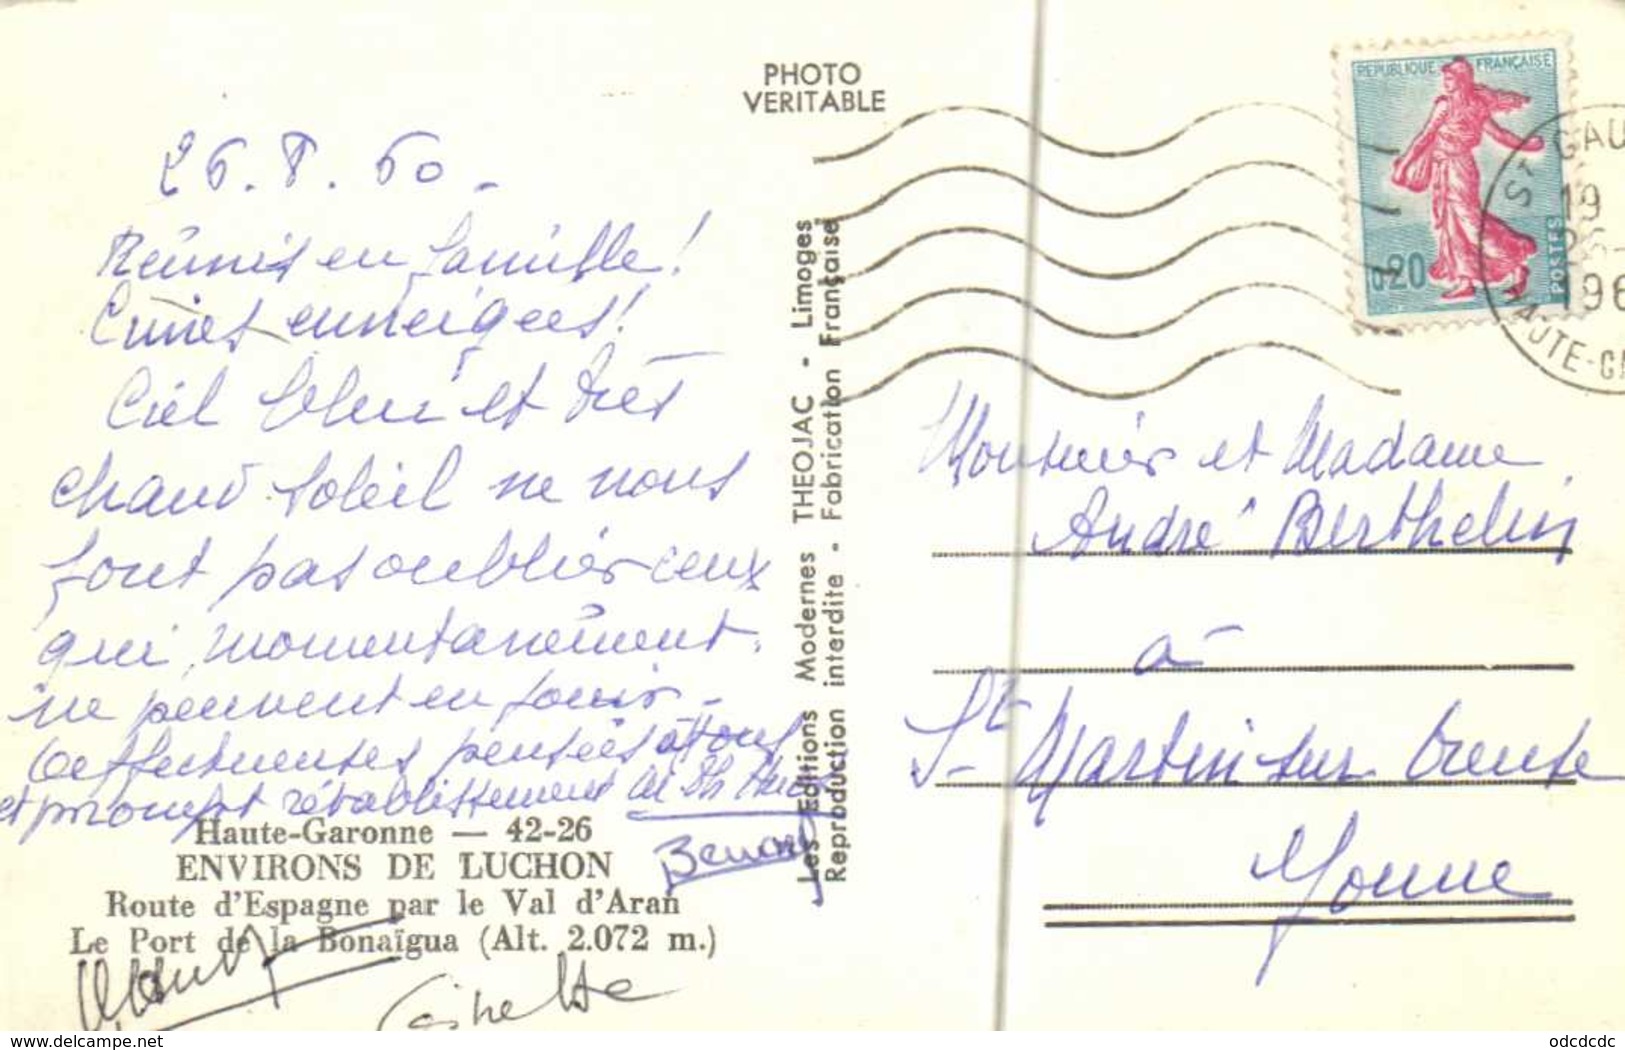 PHOTO
VERITABLE
26.8.60 -
Réunis en famille!
Cimes enneigées!
Ciel bleu et très
chaud soleil ne nous
font pas oublier ceux
qui, momentanément,
ne peuvent en jouir -
Affectueuses pensées à tous
et prompt rétablissement
Haute-Garonne — 42-26
ENVIRONS DE LUCHON
Route d'Espagne par le Val d'Aran
Le Port de la Bonaïgua (Alt. 2.072 m.)
Les Editions Modernes THEOJAC - Limoges
Reproduction interdite - Fabrication Française
REPUBLIQUE FRANÇAISE
0,20
POSTES
ST GAU
19
26-
196
HAUTE-G
Monsieur et Madame
André Berthelin
à
St Martin sur Oreuse
Yonne
www.delcampe.net
odcdcdc